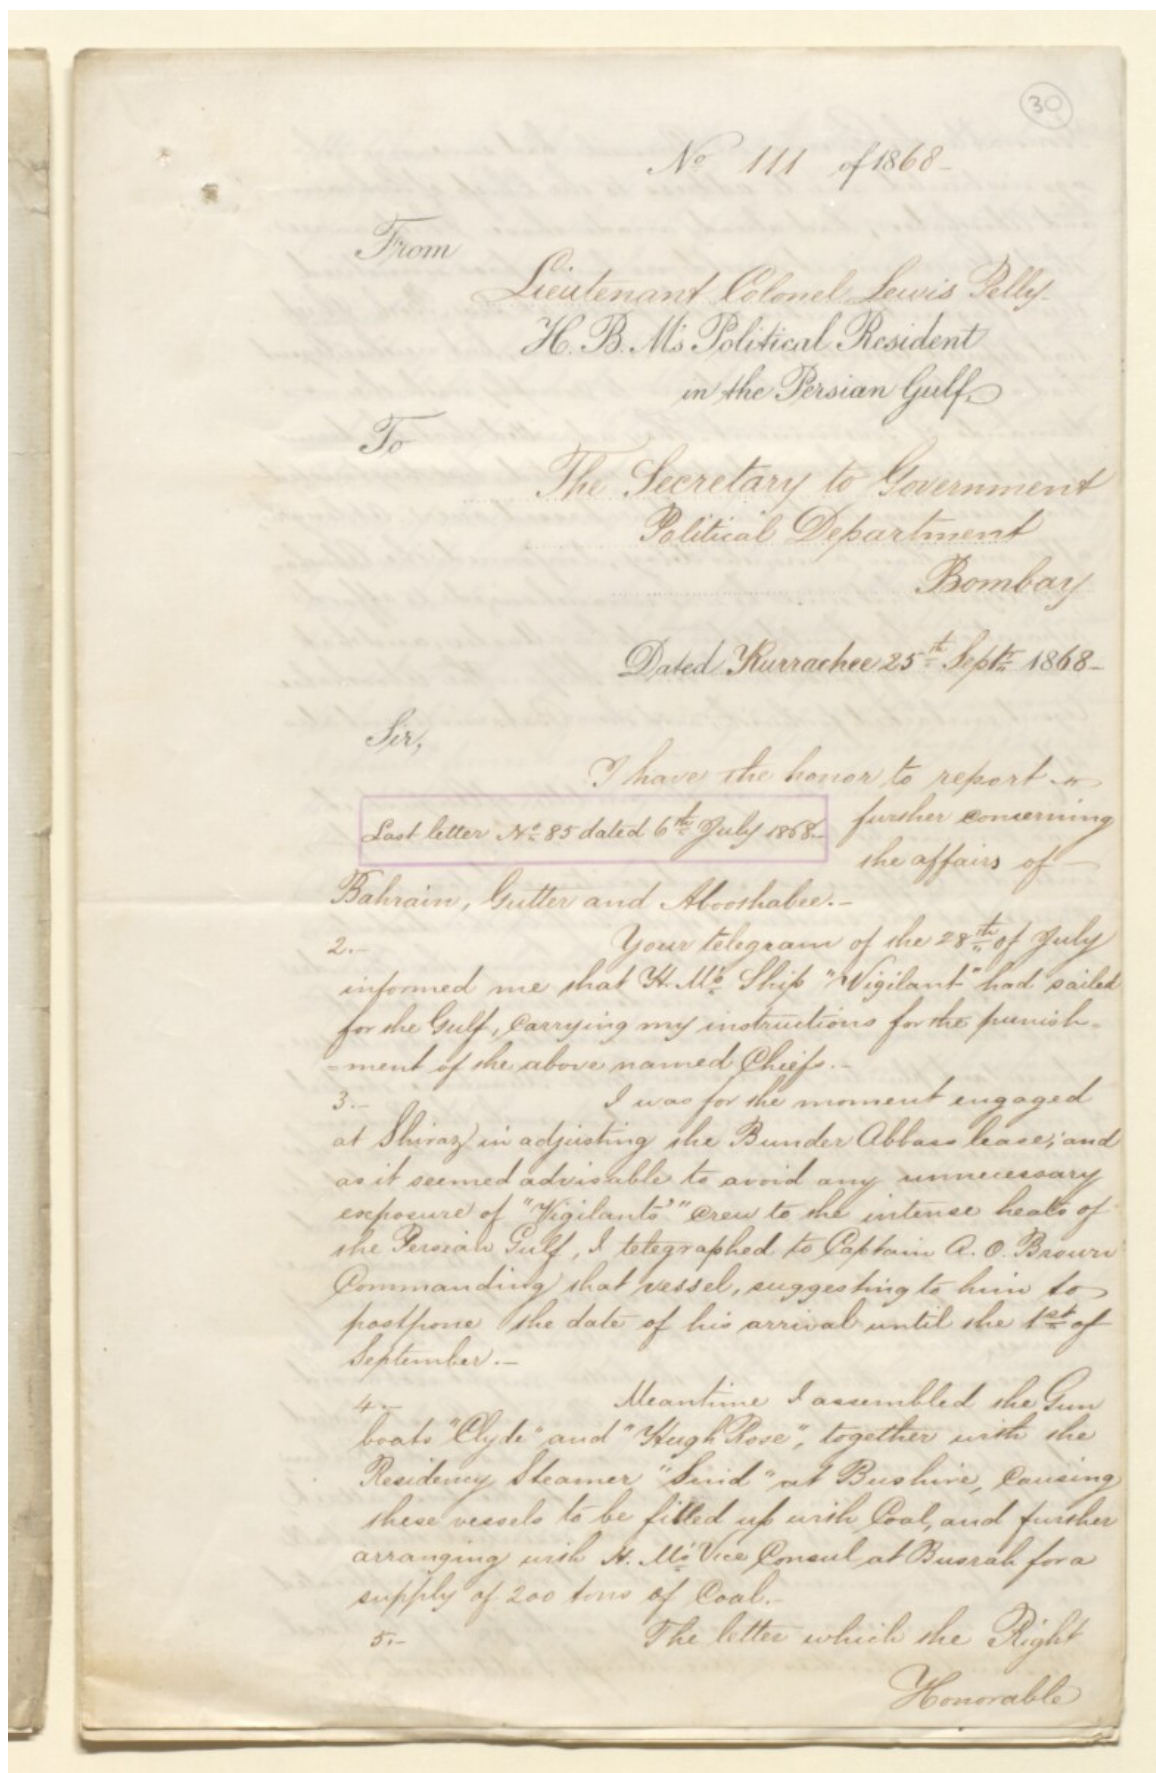 30
No 111 of 1868-
From
Lieutenant Colonel Lewis Pelly
H. B. M's Political Resident
in the Persian Gulf
To
The Secretary to Government
Political Department
Bombay
Dated Kurrachee 25th Septr 1868-
Sir,
I have the honor to report
Last letter No 85 dated 6th July 1868-
further concerning
the affairs of
Bahrain, Gutter and Abooshabee.-
2.- Your telegram of the 28th of July
informed me that H. M's Ship "Vigilant" had sailed
for the Gulf, carrying my instructions for the punish-
-ment of the above named Chiefs.-
3.- I was for the moment engaged
at Shiraz in adjusting the Bunder Abbass lease; and
as it seemed advisable to avoid any unnecessary
exposure of "Vigilants'" crew to the intense heats of
the Persian Gulf, I telegraphed to Captain R. O. Brown
Commanding that vessel, suggesting to him to
postpone the date of his arrival until the 1st of
September.-
4.- Meantime I assembled the Gun
boats "Clyde" and "Hugh Rose", together with the
Residency Steamer "Sind" at Bushire, causing
these vessels to be filled up with Coal, and further
arranging with H. M's Vice Consul at Busrah for a
supply of 200 tons of Coal.-
5.- The letter which the Right
Honorable